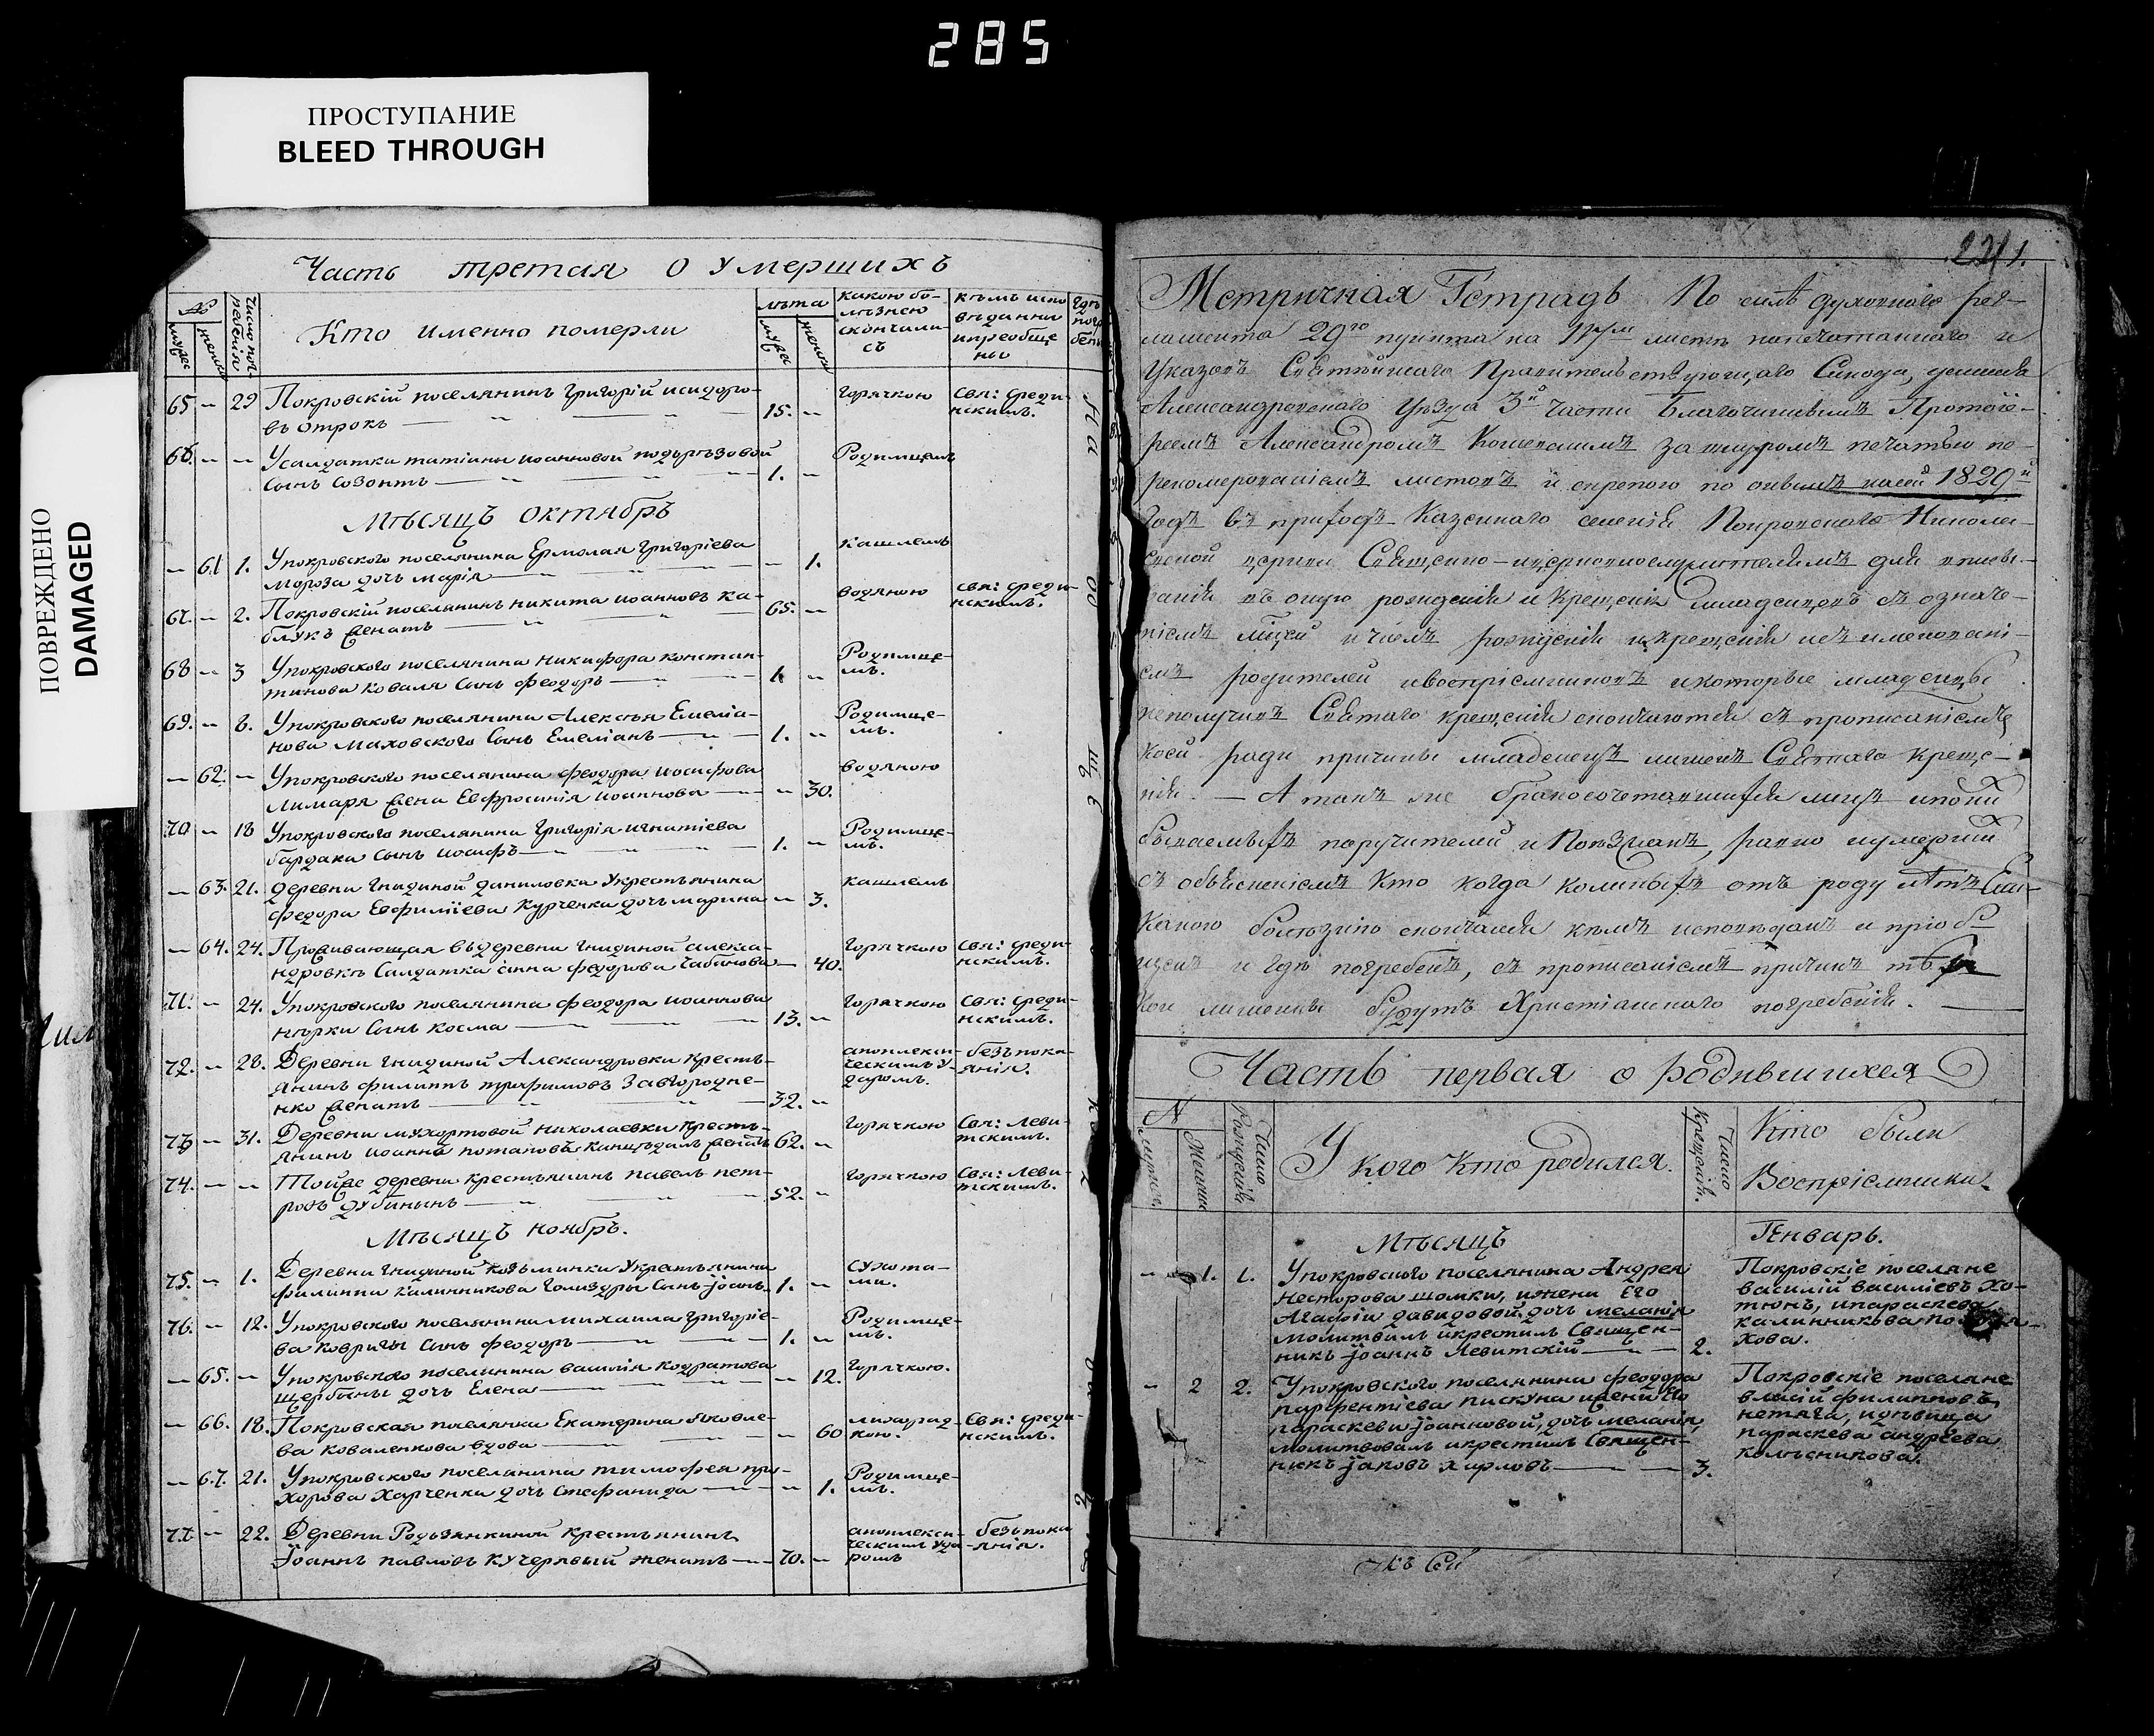 285
ПРОСТУПАНИЕ
BLEED THROUGH
ПОВРЕЖДЕНО
DAMAGED
Часть третая о умершихъ
№
Число погребенія
Кто именно померли
лѣта
какою болѣзнею скончались
кѣмъ исповѣданы и пріобщены
мужес
женски
65. — 29 Покровскій поселянинъ Григорій исидоро-
въ отрокъ — 15. — горячкою Свя: Среди-
нскимъ.
66. — — Усалдатки татіаны иоанновой
сынъ Созонтъ — 1. — Родимцемъ
Мѣсяцъ октябрь
— 61 1. Упокровского поселянина Ермолая Григоріева
мороза дочь марія — — 1. кашлемъ
67. — 2. Покровскій поселянинъ никита иоанновъ ка-
блукъ женатъ — 65. — водяною Свя: Среди-
нскимъ.
68 — 3 Упокровского поселянина никифора констан-
тинова коваля сынъ феодоръ — 1. — Родимце-
мъ.
69. — 8. Упокровского поселянина Алексѣя Емелiа-
нова маховского сынъ Емеліанъ — 1. — Родимце-
мъ.
— 62. — Упокровского поселянина феодора иосифова
лимаря жена Евфросинія иоаннова — — 30. водяною
70 — 18 Упокровского поселянина григорія игнатіева
бардака сынъ иосифъ — 1. — Родимце-
мъ.
— 63. 21. деревни гнидиной даниловки Укрестьянина
федора Евфиміева Курченка дочь марина — 3. кашлемъ
— 64. 24. Проживающая въ деревни гнидиной алекса-
ндровкѣ Салдатка анна федорова чабанова — 40. горячкою Свя: Среди-
нскимъ.
71. — 24. Упокровского поселянина феодора иоаннова
сынъ косма — 13. — горячкою Свя: Среди-
нскимъ.
72. — 28. Деревни гнидиной Александровки кресть-
янинъ филиппъ трофимовъ Завгородне-
нко женатъ — 32. — апоплекси-
ческимъ у-
даромъ. безъ пока-
янія.
73 — 31. Деревни мухортовой николаевки кресть-
янинъ иоаннъ потаповъ женатъ 62. — горячкою Свя: Леви-
тскимъ.
74. — — Тойже деревни крестьянинъ павелъ пет-
ровъ дубининъ — 52. — горячкою Свя: Леви-
тскимъ.
Мѣсяцъ ноябрь.
75. — 1. Деревни гнидиной козьминки Укрестьянина
филиппа калинникова сынъ Іоанъ. 1. — сухота-
ми.
76. — 12. Упокровского поселянина михаила григоріе-
ва ковриги сынъ феодоръ — 1. — Родимце-
мъ.
— 65. — Упокровского поселянина василія кодратова
щербины дочь Елена — — 12. горячкою.
— 66. 18. Покровская поселянка Екатерина яковле-
ва коваленкова вдова — — 60 лихорад-
кою. Свя: Среди-
нскимъ.
— 67. 21. Упокровского поселянина тимофея про-
хорова Харченка дочь Стефанида — — 1. Родимце-
мъ.
77. — 22. Деревни Родзянкиной крестьянинъ
Іоаннъ павловъ кучерявый женатъ — 70. — апоплекси-
ческимъ уда-
ромъ безъ пока-
янія.
Метричная Тетрадь По силѣ духовнаго рег-
ламента 29го пункта на листѣ напечатаннаго и
Указовъ Святѣйшаго Правительствующаго Синода,
Александровскаго уѣзда 3й части Благочиннымъ Протоіе-
реемъ Александромъ за шнуромъ печатью
листовъ и скрепою 1829й
годъ въ приходъ Казеннаго селенія Покровскаго Никола-
евской церкви Священно-церковнослужителямъ для вписы-
ванія въ оную рожденія и крещенія младенцовъ съ означе-
ніемъ мѣсяцей и числъ рожденія и крещенія и съ именовані-
емъ родителей и воспріемниковъ и которые младенцы
неполучивъ Святаго крещенія скончаются съ прописаніемъ
коей ради причины младенецъ лишенъ Святаго Креще-
нія. — А такъ же бракосочетавшихся лицъ и по
нихъ поручителей, равно и умерши
съ объясненіемъ Кто когда коликихъ отъ роду лѣтъ
Какою болѣзнію скончался кѣмъ исповѣданъ и пріоб
щенъ и гдѣ погребенъ, съ прописаніемъ причинъ
кои лишены будутъ Христіанскаго погребенія.
Часть первая о родившихся
N
Женска
Число Рожденія
У кого кто родился.
Число Крещенія.
Кто были
Воспріемники.
Мѣсяцъ Генварь.
— 1. 1. Упокровского поселянина Андрея
Несторова шомки, ижены Его
Агафіи давидовой, дочь меланія
молитвилъ икрестилъ Священ-
никъ Іоаннъ Левитскій — 2.
Покровскіе поселяне
василій василіевъ Хо-
тюнъ, ипараскева
калинникова
— 2 2. Упокровского поселянина феодора
парфентіева пискуна ижены Его
параскевы Іоанновой, дочь меланія,
молитвовалъ икрестилъ Священ-
никъ Іаковъ — 3.
Покровскіе поселяне
власій филипповъ
нетяга, идѣвица
параскева андреева
колѣсникова.